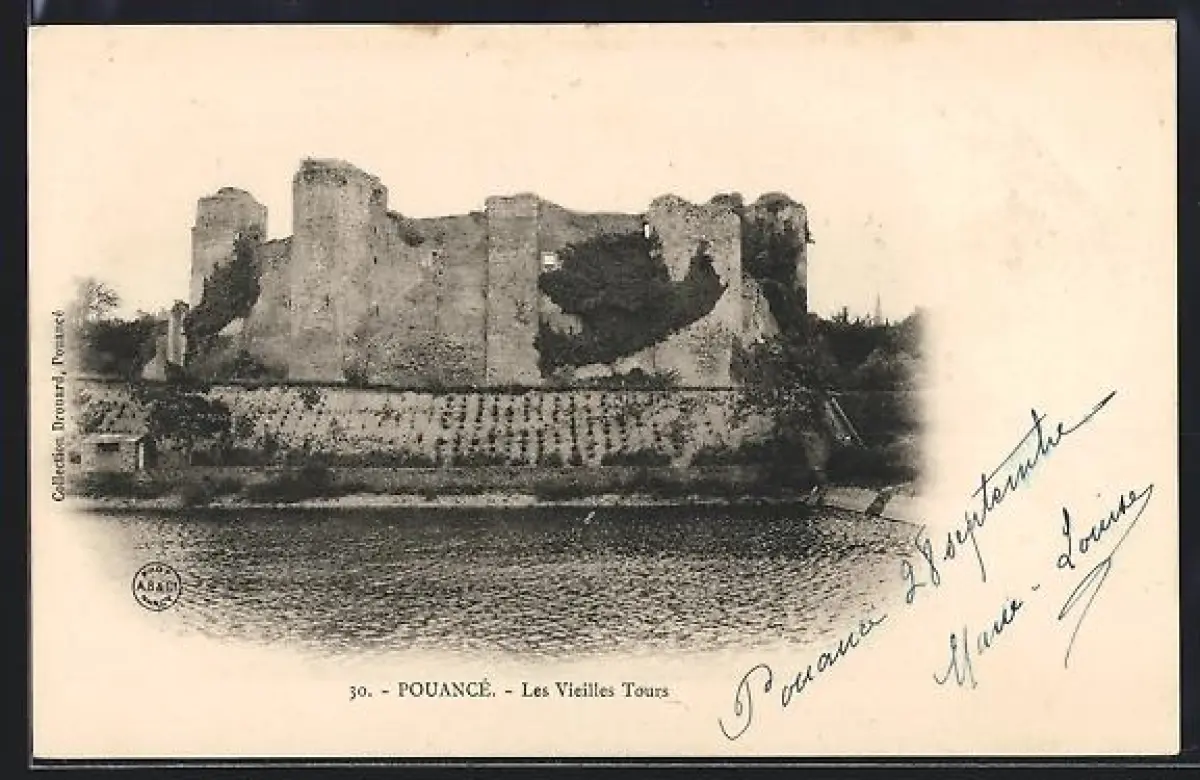 Collection Drouard, Pouancé
A.B.&C.
30. - POUANCÉ. - Les Vieilles Tours
Pouancé 28 septembre
Marie-Louise